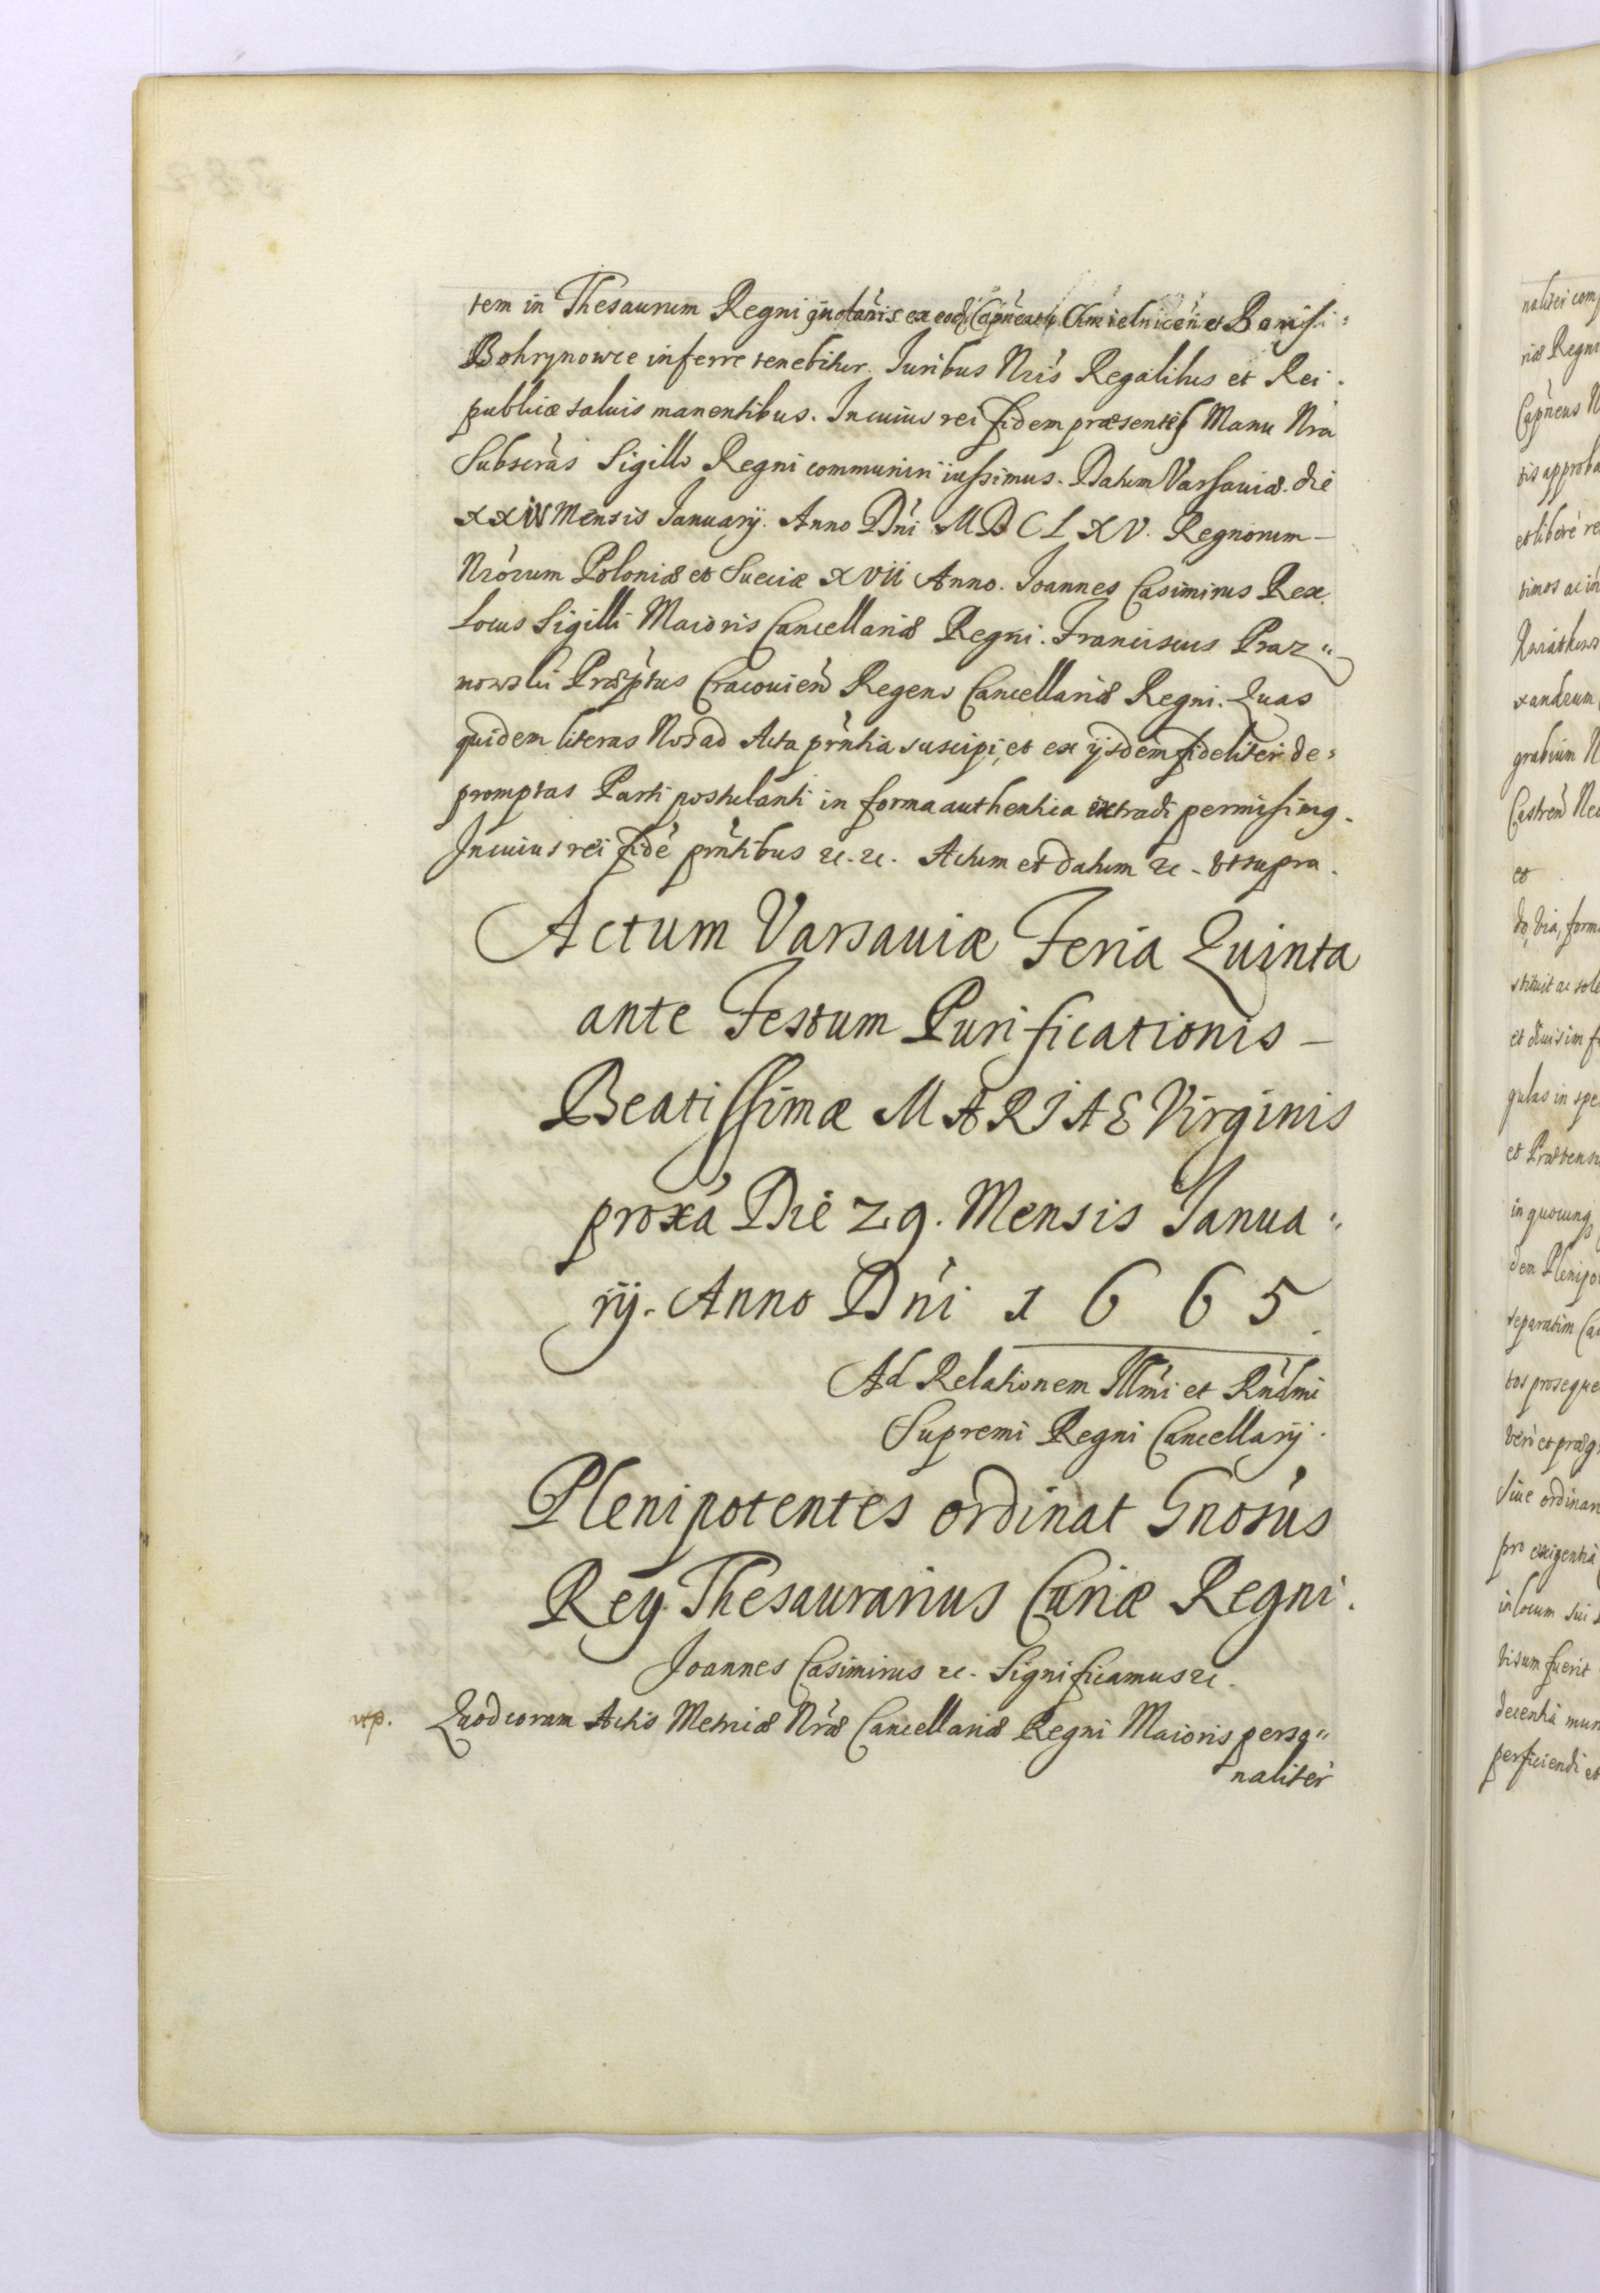 tem in Thesaurum Regni quotañis ex eod. Capñeatu Chmielniceñ et Bonis
Bohrynowce inferre tenebitur. Iuribus Nris Regalibus et Rei
publicæ salvis manentibus. In cuius rei fidem præsentes Manu Nra
Subscras Sigillo Regni communiri iussimus. Datum Varsaviæ. die
xxiv Mensis Ianuarij. Anno Dni MDCLXV. Regnorum –
Nrorum Poloniæ et Sueciæ XVII Anno. Ioannes Casimirus Rex.
Locus Sigilli Maioris Cancellariæ Regni. Franciscus Praz"
nowski Præptus Cracovien Regens Cancellariæ Regni. Quas
quidem literas Nos ad Acta prntia suscipi, et ex ijsdem fideliter de:
promptas Parti postulanti in forma authentica extradi permisimq.
In cuius rei fidé prntibus &c. &c. Actum et datum &c. vt supra.
Actum Varsaviæ Feria Quinta
ante Festum Purificationis –
Beatissimæ MARIAE Virginis
proxá Die 29. Mensis Ianua"
rij. Anno Dni 1665.
Ad Relationem Illmi et Rndmi
Supremi Regni Cancellarij.
Plenipotentes ordinat Gnosus
Rey Thesaurarius Curiæ Regni.
Joannes Casimirus &c. Significamus &c.
vtp. Quod coram Actis Metricæ Nræ Cancellariæ Regni Maioris perso"
naliter
naliter
riæ Regni
Capneus
tis approba
et libere re
timos ac in
xandrum
grabium
Castren
et
do, via, form
stituit ac sole
et divisim
gulas in spe
in quocunq
dem Plenipo
separatim
tos proseque
Sive ordinar
pro exigentia
in locum sui
visum fuerit
decentia mun
perficiendi et